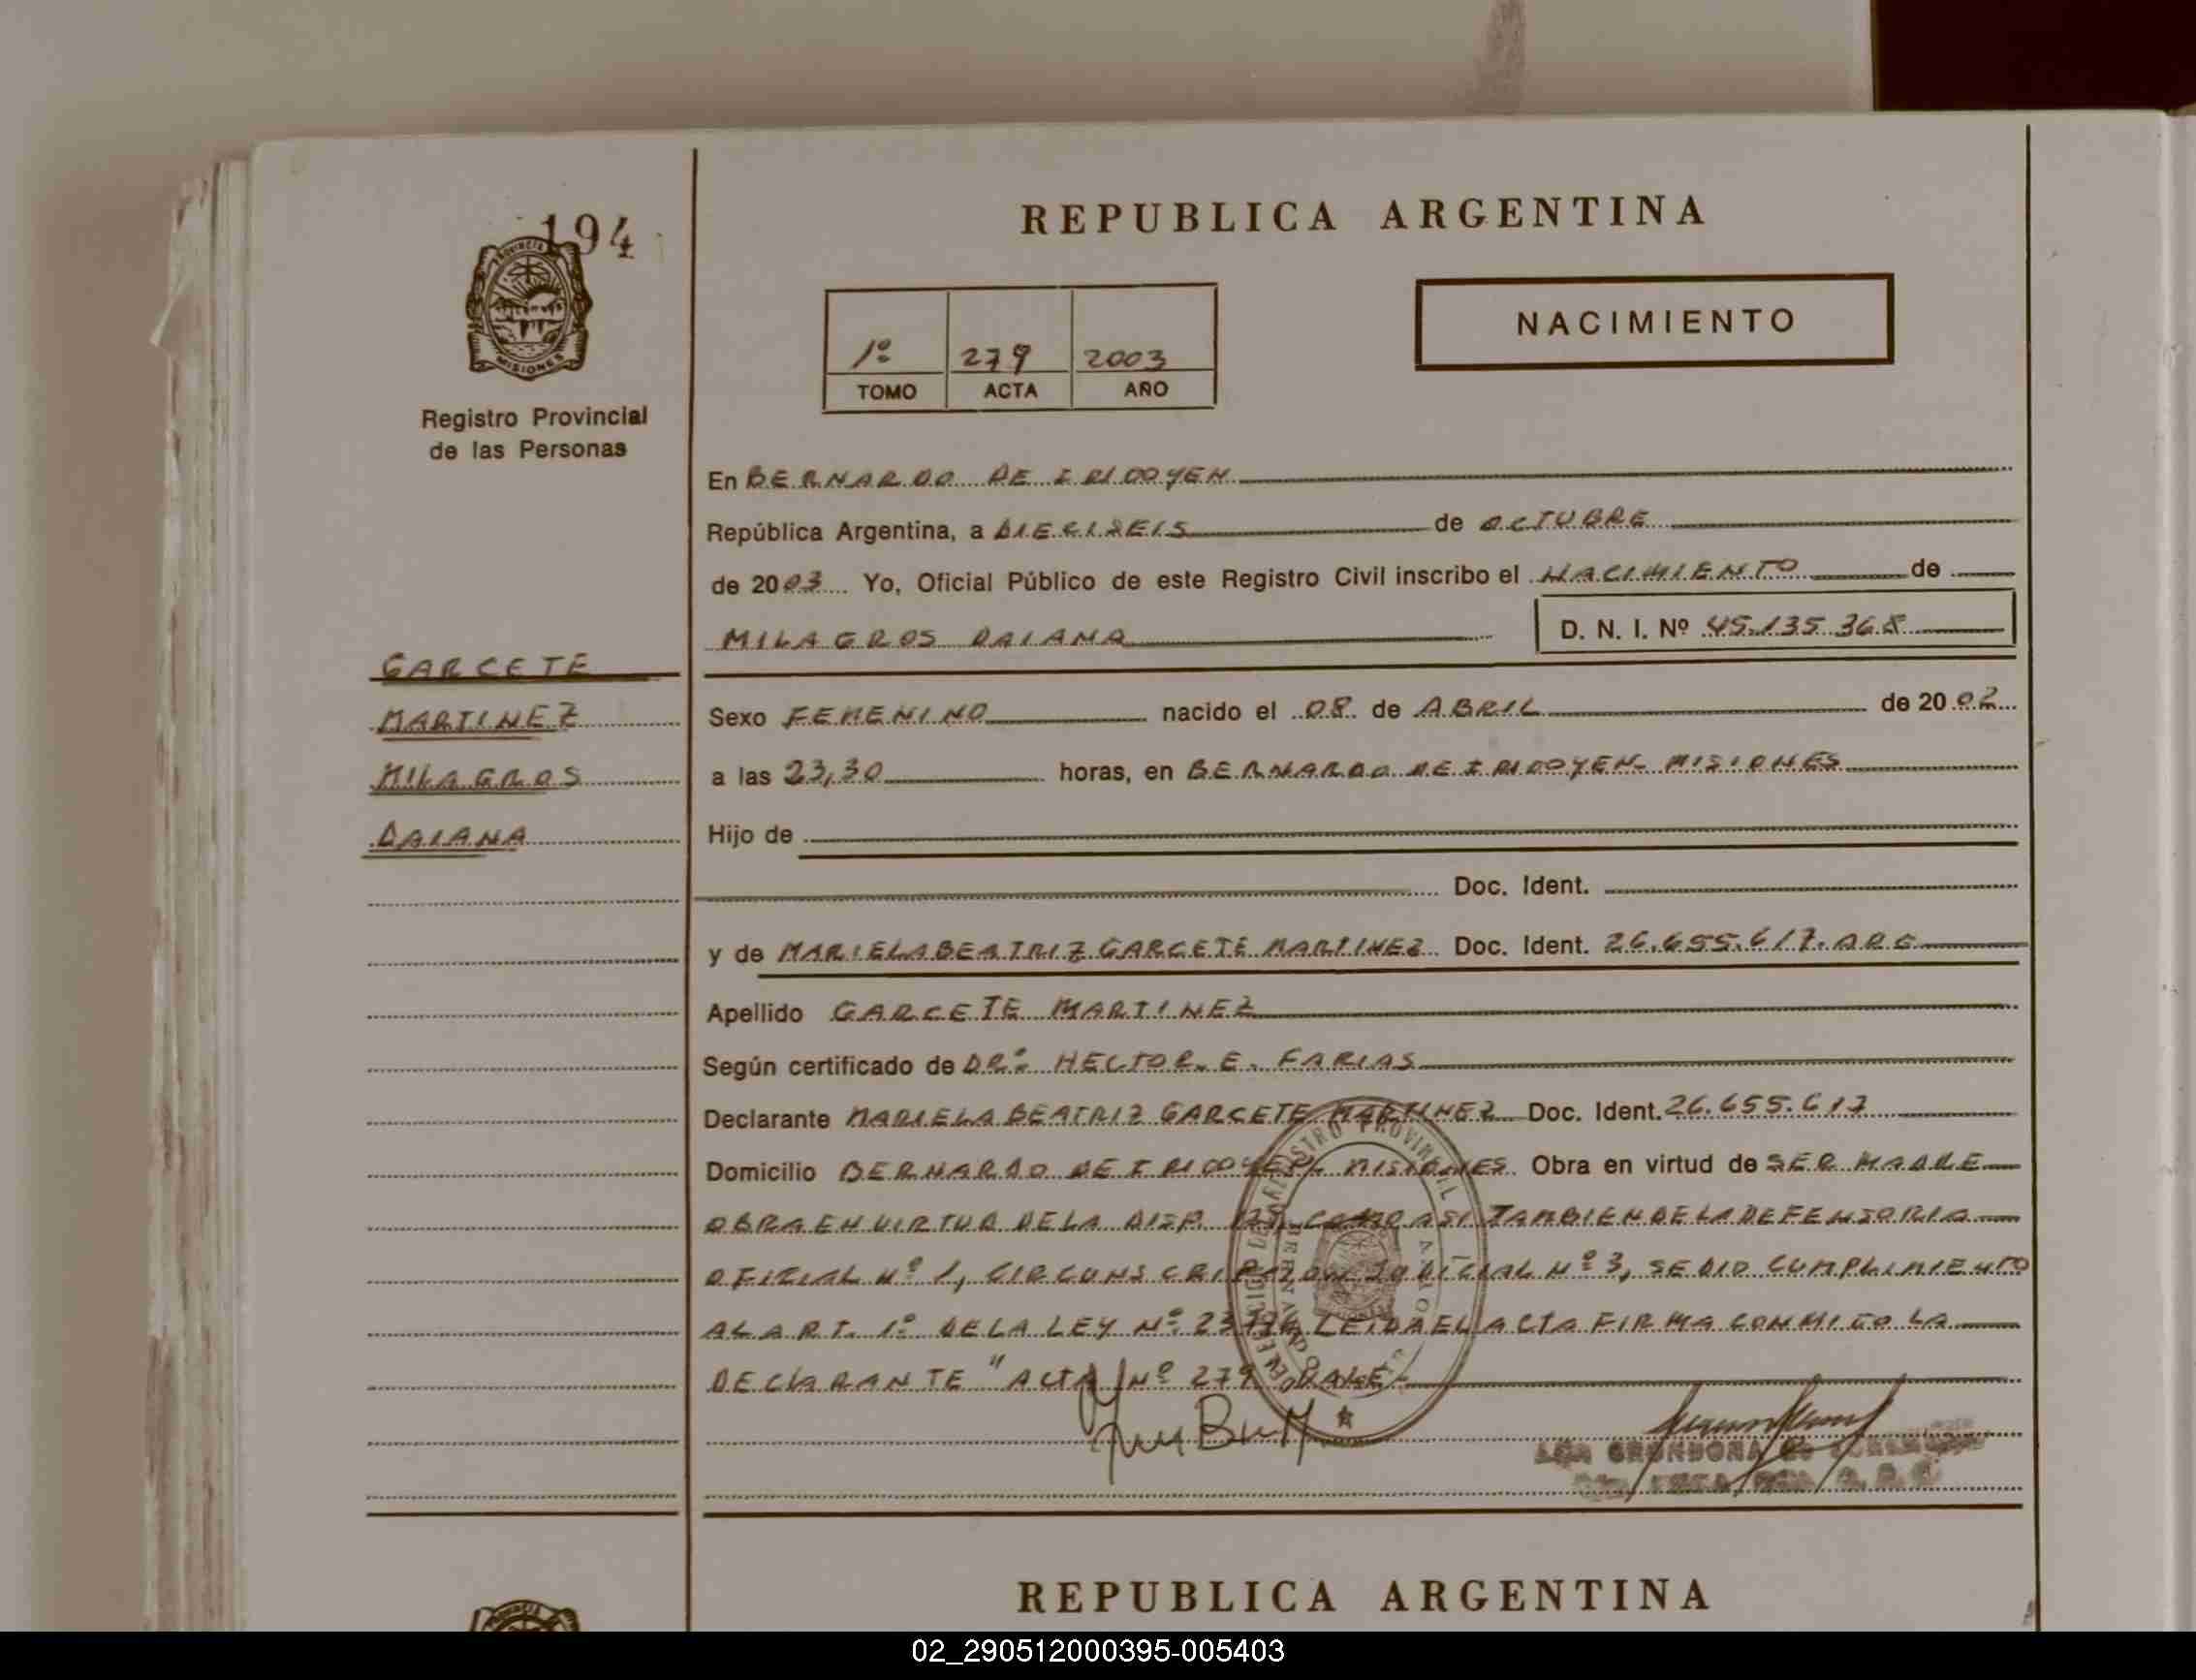 194
PROVINCIA
MISIONES
Registro Provincial
de las Personas
REPUBLICA ARGENTINA
1º 279 2003
TOMO ACTA AÑO
NACIMIENTO
En BERNARDO DE IRIGOYEN
República Argentina, a DIECISEIS de OCTUBRE
de 2003 Yo, Oficial Público de este Registro Civil inscribo el NACIMIENTO de
MILAGROS DAIANA D. N. I. Nº 45.135.368
GARCETE
MARTINEZ
MILAGROS
DAIANA
Sexo FEMENINO nacido el 08 de ABRIL de 2002
a las 23,30 horas, en BERNARDO DE IRIGOYEN- MISIONES
Hijo de
Doc. Ident.
y de MARIELA BEATRIZ GARCETE MARTINEZ Doc. Ident. 26.655.617. ARG
Apellido GARCETE MARTINEZ
Según certificado de DRº HECTOR. E. FARIAS
Declarante MARIELA BEATRIZ GARCETE MARTINEZ Doc. Ident. 26.655.617
Domicilio BERNARDO DE IRIGOYEN- MISIONES Obra en virtud de SER MADRE
OBRA EN VIRTUD DE LA DISP. COMO ASI TAMBIEN DE LA DEFENSORIA
OFICIAL Nº 1, CIRCUNSCRIPCION JUDICIAL Nº 3, SE DIO CUMPLIMIENTO
AL ART. 1º DE LA LEY Nº LEIDA EL ACTA FIRMA CONMIGO LA
DECLARANTE "ACTA Nº 279 VALE-
REGISTRO PROVINCIAL
GRONDONA
REPUBLICA ARGENTINA
PROVINCIA
02_290512000395-005403